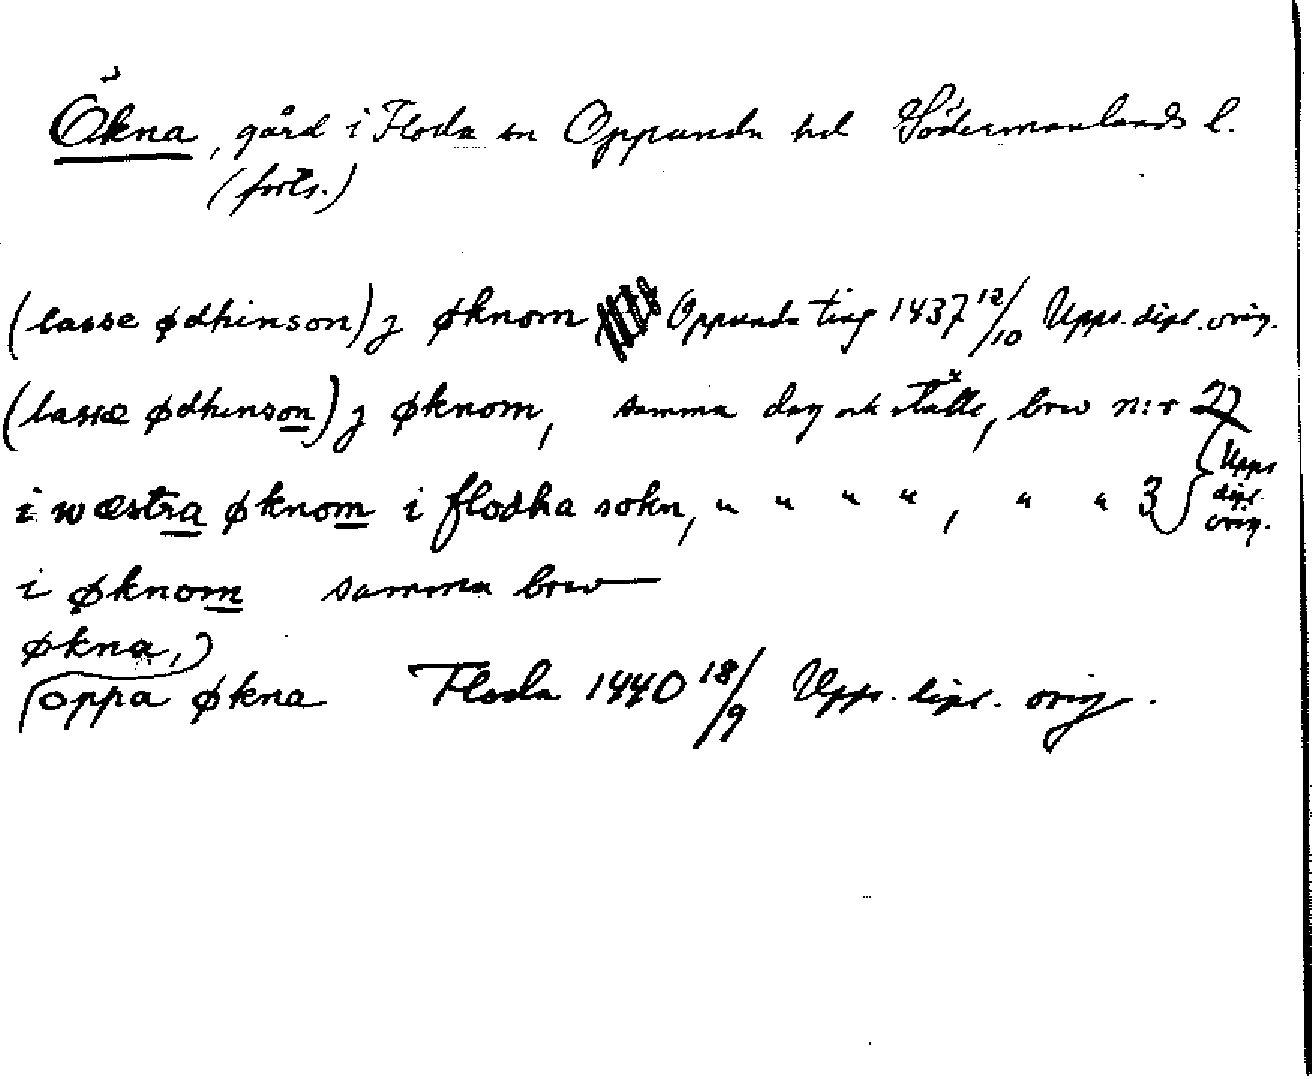 Ökna, gård i Floda sn Oppunda hd Södermanlands l.
(forts.)
(lasse ødhinson) j øknom Oppunda ting 1437 12/10 Upps. dipl. orig.
(lasse ødhinson) j øknom, samma dag och ställe, brev n:r 27
i wæstra øknom i flodha sokn, " " " " , " " 3 } Upps dipl. orig.
i øknom samma brev
økna,
oppa økna Floda 1440 18/9 Upps. dipl. orig.